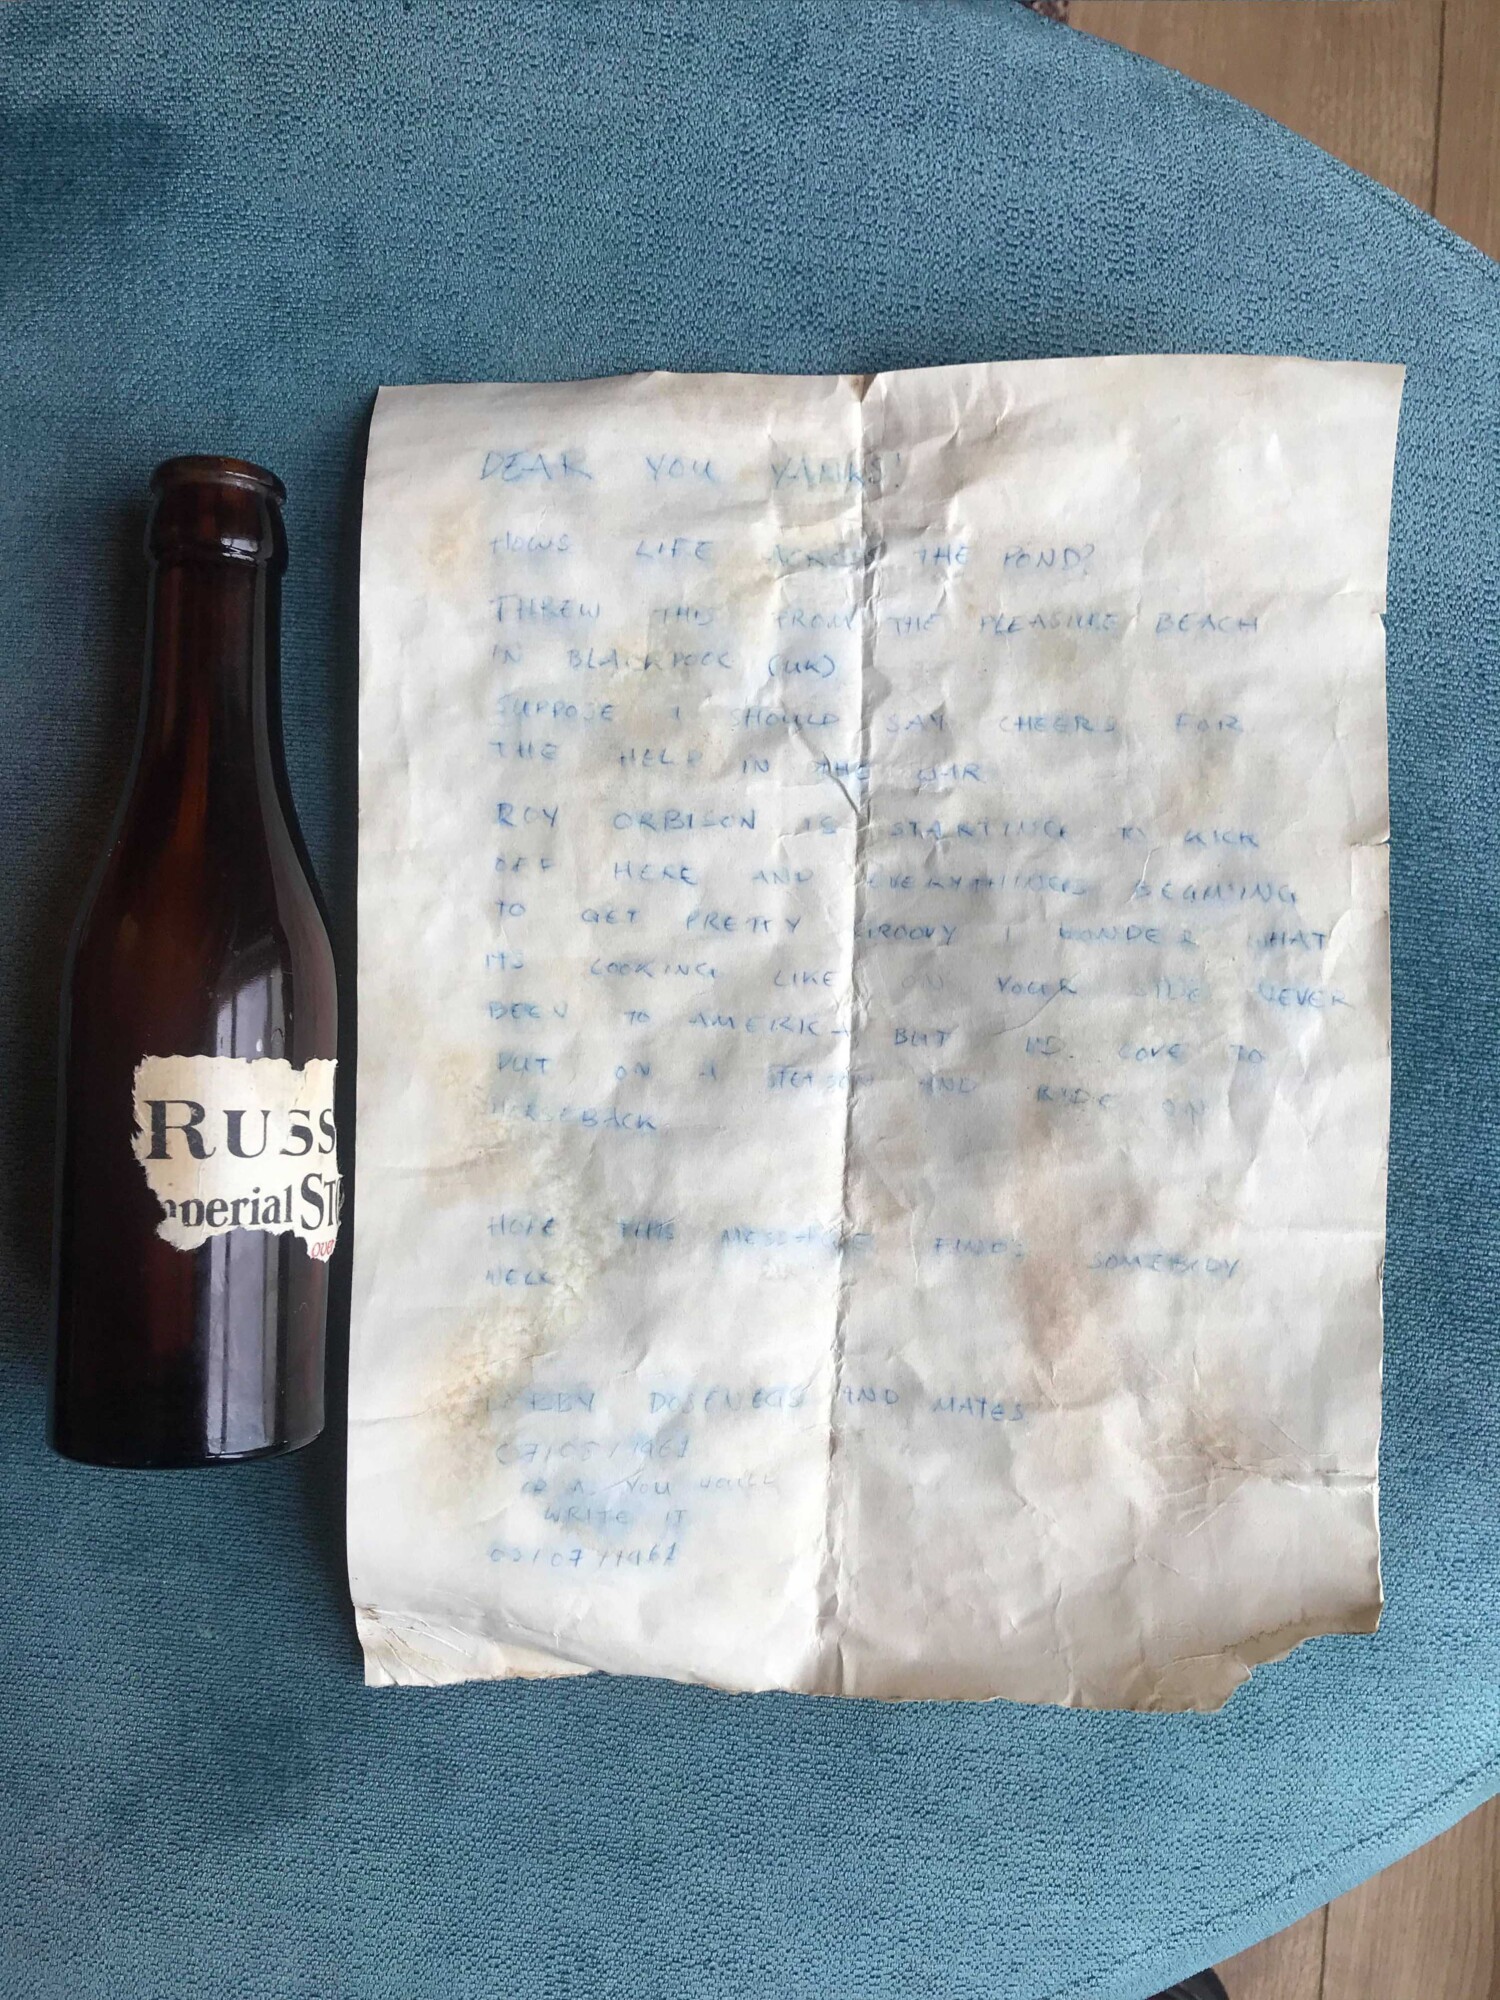 DEAR YOU YANKS!
HOWS LIFE ACROSS THE POND?
THREW THIS FROM THE PLEASURE BEACH
IN BLACKPOOL (UK)
SUPPOSE I SHOULD SAY CHEERS FOR
THE HELP IN THE WAR
ROY ORBISON IS STARTING TO KICK
OFF HERE AND EVERYTHINGS BEGINING
TO GET PRETTY GROOVY I WONDER WHAT
ITS LOOKING LIKE ON YOUR SIDE NEVER
BEEN TO AMERICA BUT I'D LOVE TO
PUT ON A STETSON AND RIDE ON
HORSEBACK
HOPE THIS MESSAGE FINDS SOMEBODY
WELL
AND MATES
07/05/1961
OR AS YOU
WRITE IT
05/07/1961
RUSS
mperial STO
over